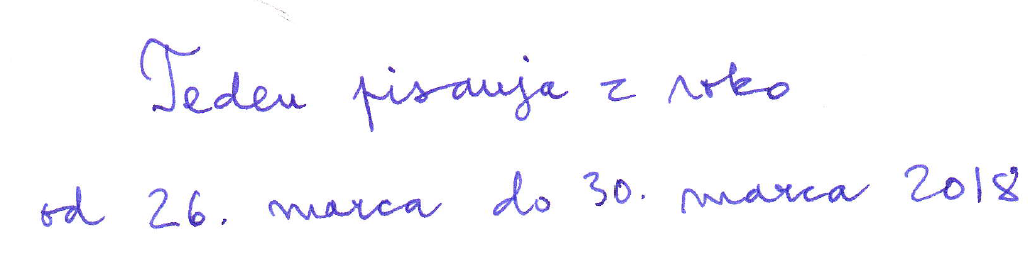 Teden pisanja z roko
od 26. marca do 30. marca 2018